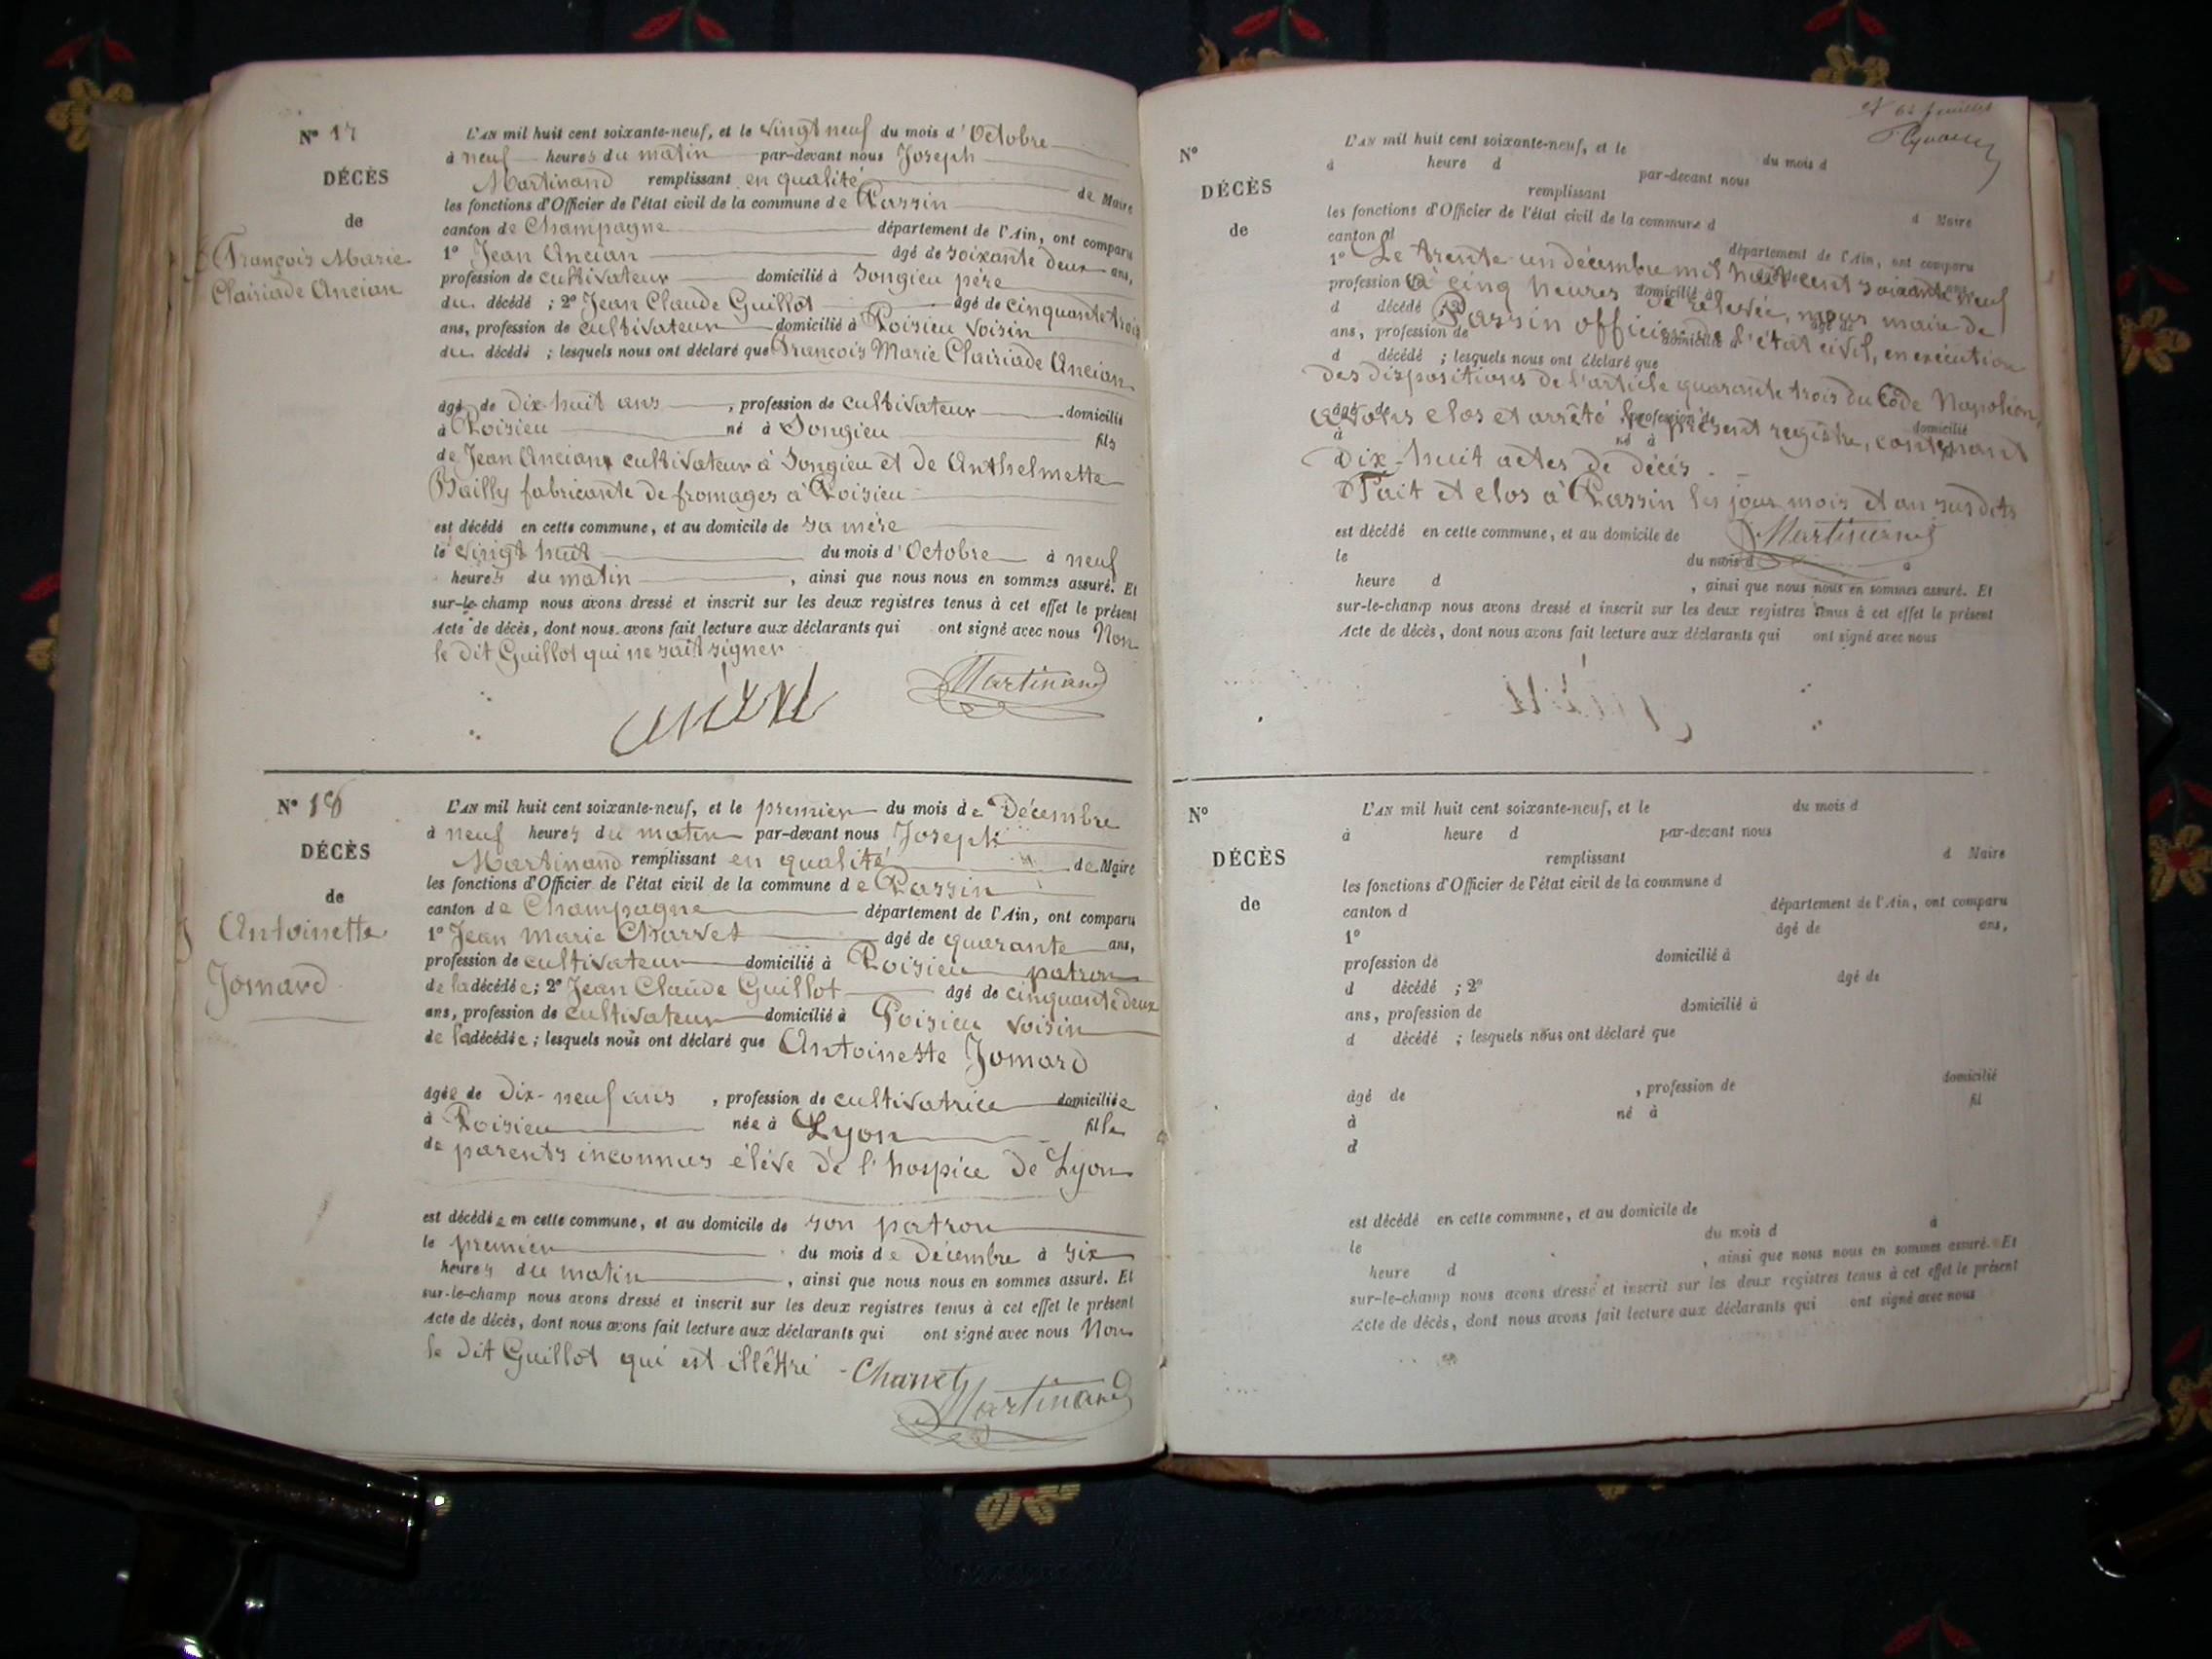 N° 17
DÉCÈS
de
François Marie
Clairiade Ancian
L'AN mil huit cent soixante-neuf, et le vingt neuf du mois d'Octobre
à neuf heures du matin par-devant nous Joseph
Martinand remplissant en qualité de Maire
les fonctions d'Officier de l'état civil de la commune de Passin
canton de Champagne département de l'Ain, ont comparu
1° Jean Ancian âgé de soixante deux ans,
profession de cultivateur domicilié à Songieu père
du décédé ; 2° Jean Claude Guillot âgé de cinquante trois
ans, profession de cultivateur domicilié à Poisieu voisin
du décédé ; lesquels nous ont déclaré que François Marie Clairiade Ancian
âgé de dix-huit ans , profession de cultivateur domicilié
à Poisieu né à Songieu fils
de Jean Ancian, cultivateur à Songieu et de Anthelmette
Bailly fabricante de fromages à Poisieu
est décédé en cette commune, et au domicile de sa mère
le vingt huit du mois d'Octobre à neuf
heures du matin , ainsi que nous nous en sommes assuré. Et
sur-le-champ nous avons dressé et inscrit sur les deux registres tenus à cet effet le présent
Acte de décès, dont nous avons fait lecture aux déclarants qui ont signé avec nous Non
le dit Guillot qui ne sait signer
Martinand
N° 18
DÉCÈS
de
Antoinette
Jomard
L'AN mil huit cent soixante-neuf, et le premier du mois de Décembre
à neuf heures du matin par-devant nous Joseph
Martinand remplissant en qualité de Maire
les fonctions d'Officier de l'état civil de la commune de Passin
canton de Champagne département de l'Ain, ont comparu
1° Jean Marie Charvet âgé de quarante ans,
profession de cultivateur domicilié à Poisieu patron
de la décédée ; 2° Jean Claude Guillot âgé de cinquante deux
ans, profession de cultivateur domicilié à Poisieu voisin
de la décédée ; lesquels nous ont déclaré que Antoinette Jomard
âgée de dix-neuf ans , profession de cultivatrice domiciliée
à Poisieu née à Lyon fille
de parents inconnus élève de l'hospice de Lyon
est décédée en cette commune, et au domicile de son patron
le premier du mois de Décembre à six
heures du matin , ainsi que nous nous en sommes assuré. Et
sur-le-champ nous avons dressé et inscrit sur les deux registres tenus à cet effet le présent
Acte de décès, dont nous avons fait lecture aux déclarants qui ont signé avec nous Non
le dit Guillot qui est illêttré - Charvet
Martinand
et 6e feuillet
N°
DÉCÈS
de
L'AN mil huit cent soixante-neuf, et le du mois d
à heure d par-devant nous
remplissant d Maire
les fonctions d'Officier de l'état civil de la commune d
canton d département de l'Ain, ont comparu
1° Le trente un décembre mil huit cent soixante neuf
profession à cinq heures domicilié à de relevée, nous maire de
d décédé ; 2° Passin officier de l'état civil, en exécution
ans, profession de domicilié à
d décédé ; lesquels nous ont déclaré que
des dispositions de l'article quarante trois du Code Napoléon,
âgé de , profession de domicilié
avons clos et arrêté le présent registre, contenant
à né à
Dix-huit actes de décès.
d Fait et clos à Passin les jour mois et an susdits
est décédé en cette commune, et au domicile de Martinand
le du mois d à
heure d , ainsi que nous nous en sommes assuré. Et
sur-le-champ nous avons dressé et inscrit sur les deux registres tenus à cet effet le présent
Acte de décès, dont nous avons fait lecture aux déclarants qui ont signé avec nous
N°
DÉCÈS
de
L'AN mil huit cent soixante-neuf, et le du mois d
à heure d par-devant nous
remplissant d Maire
les fonctions d'Officier de l'état civil de la commune d
canton d département de l'Ain, ont comparu
1° âgé de ans,
profession de domicilié à
d décédé ; 2° âgé de
ans, profession de domicilié à
d décédé ; lesquels nous ont déclaré que
âgé de , profession de domicilié
à né à fil
d
est décédé en cette commune, et au domicile de
le du mois d à
heure d , ainsi que nous nous en sommes assuré. Et
sur-le-champ nous avons dressé et inscrit sur les deux registres tenus à cet effet le présent
Acte de décès, dont nous avons fait lecture aux déclarants qui ont signé avec nous